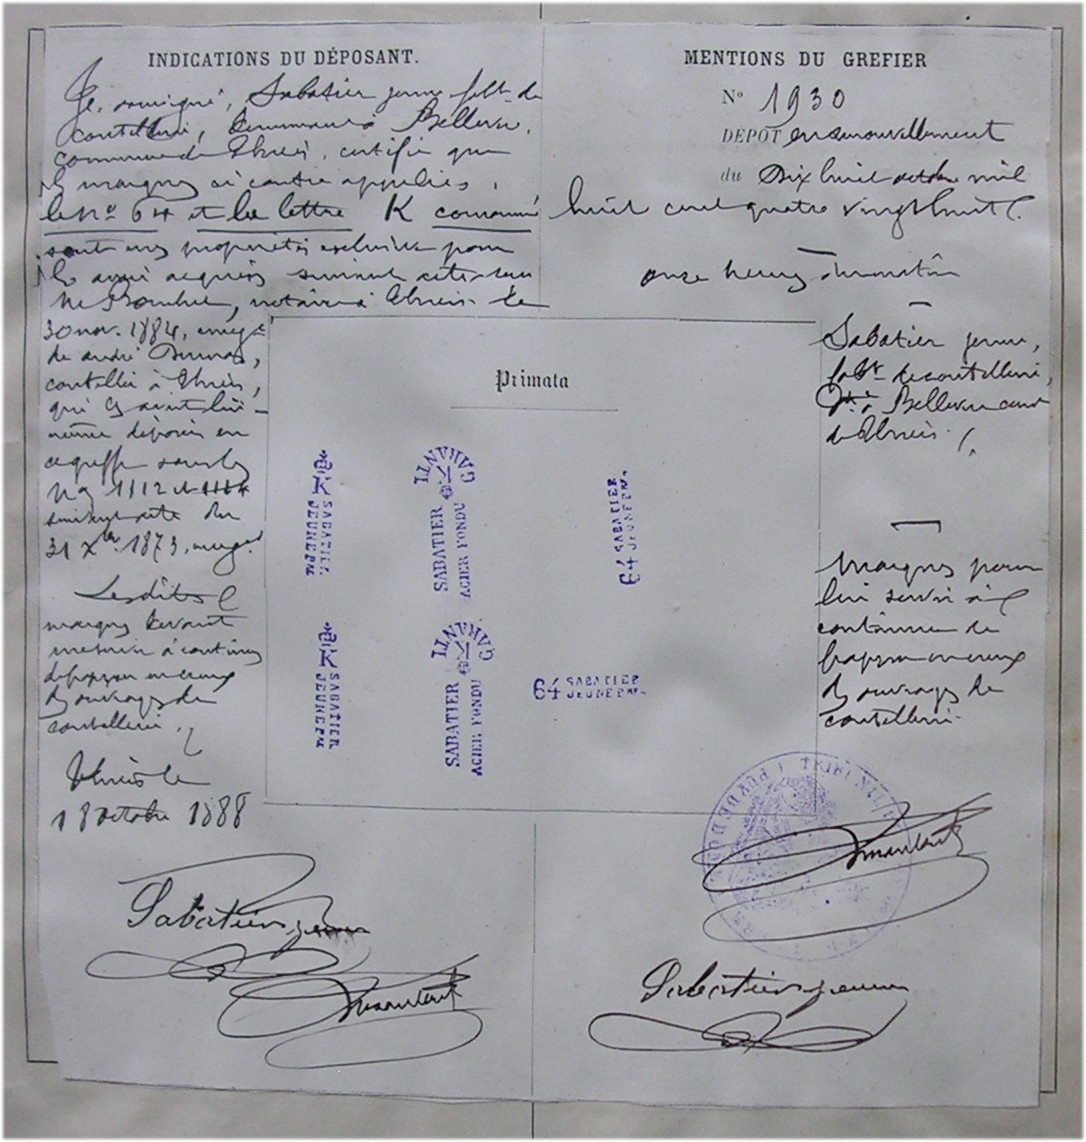 INDICATIONS DU DÉPOSANT.
Je soussigné, Sabatier jeune fabt. de
coutellerie, demeurant à Bellevue,
commune de Thiers, certifie que
les marques ci contre appelées,
le No 64 et la lettre K couronné
sont mes propriétés exclusives pour
les avoir acquises suivant acte reçu
notaire à Thiers le
30 nov. 1884, enregé
de André Dumas,
coutelier à Thiers,
qui les avait lui-
même déposées en
ce greffe sous les
Nos 1112 et
suivant acte du
31 Xbre 1873, enregé
Lesdites
marques devant
me servir à continuer
de frapper en creux
les ouvrages de
coutellerie.
Thiers le
18 octobre 1888
Sabatier jeune
MENTIONS DU GREFIER
No 1930
DÉPOT en renouvellement
du Dix huit octobre mil
huit cent quatre vingt huit
onze heures du matin
Sabatier jeune,
fabt. de coutellerie,
à Bellevue
de Thiers.
Marques pour
lui servir à
continuer de
frapper en creux
les ouvrages de
coutellerie.
Primata
K SABATIER
JEUNE PM
GARANTI
K
SABATIER
ACIER FONDU
64 SABATIER
JEUNE PM.
K SABATIER
JEUNE PM
GARANTI
K
SABATIER
ACIER FONDU
64 SABATIER
JEUNE PM.
Sabatier jeune